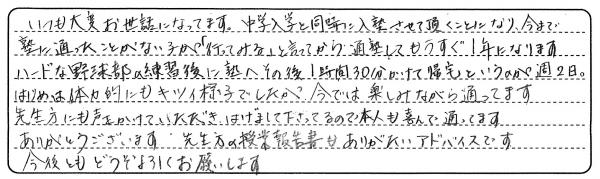 いつも大変お世話になってます。中学入学と同時に入塾させて頂くことになり、今まで
塾に通ったことがない子が「行ってみる」と言ってから通塾してもうすぐ1年になります
ハードな野球部の練習後に塾へその後1時間30分かけて帰宅というのが週2日。
はじめは体力的にもキツイ様子でしたが今では楽しみながら通ってます
先生方にも声をかけていただきはげまして下さってるので本人も喜んで通ってます
ありがとうございます 先生方の授業報告書もありがたいアドバイスです
今後ともどうぞよろしくお願いします